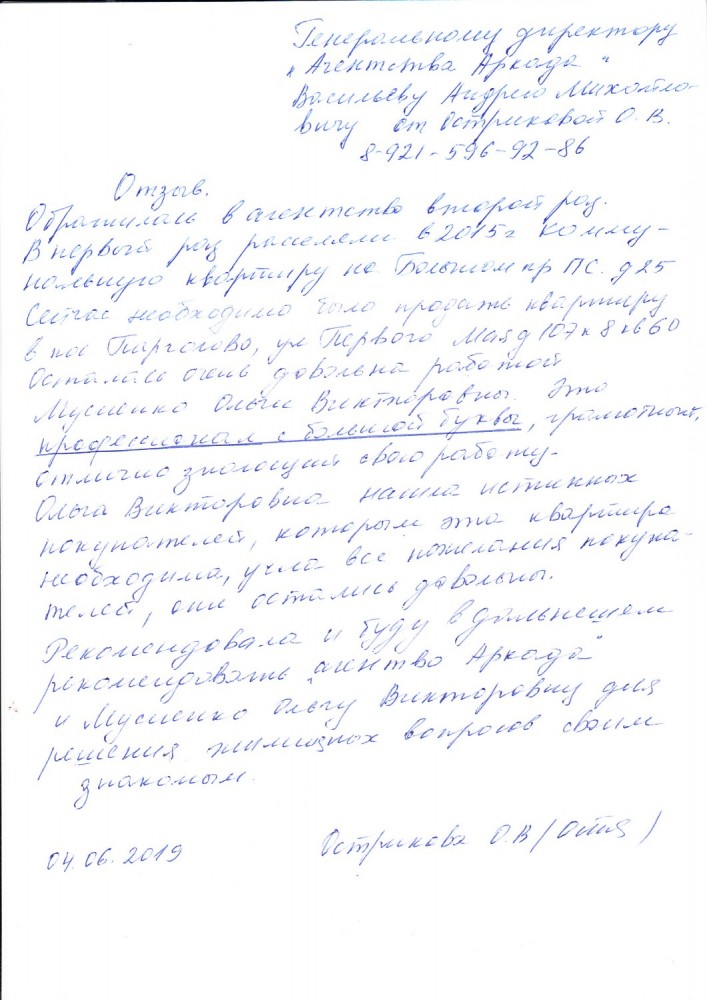 Генеральному директору
"Агентства Аркада"
Васильеву Андрею Михайло-
вичу от Остриковой О.В.
8-921-596-92-86
Отзыв.
Обратилась в агентство второй раз.
В первый раз расселяли в 2015г комму-
нальную квартиру на Большом пр ПС. д 25
Сейчас необходимо было продать квартиру
в пос Парголово, ул Первого Мая д 107 к 8 кв 60
Осталась очень довольна работой
Мусиенко Ольги Викторовны. Это
профессионал с большой буквы, грамотный,
отлично знающий свою работу.
Ольга Викторовна нашла истинных
покупателей, которым эта квартира
необходима, учла все пожелания покупа-
телей, они остались довольны.
Рекомендовала и буду в дальнешем
рекомендовать "агентво Аркада"
и Мусиенко Ольгу Викторовну для
решения жилищных вопросов своим
знакомым.
04.06.2019 Острикова О.В (                )